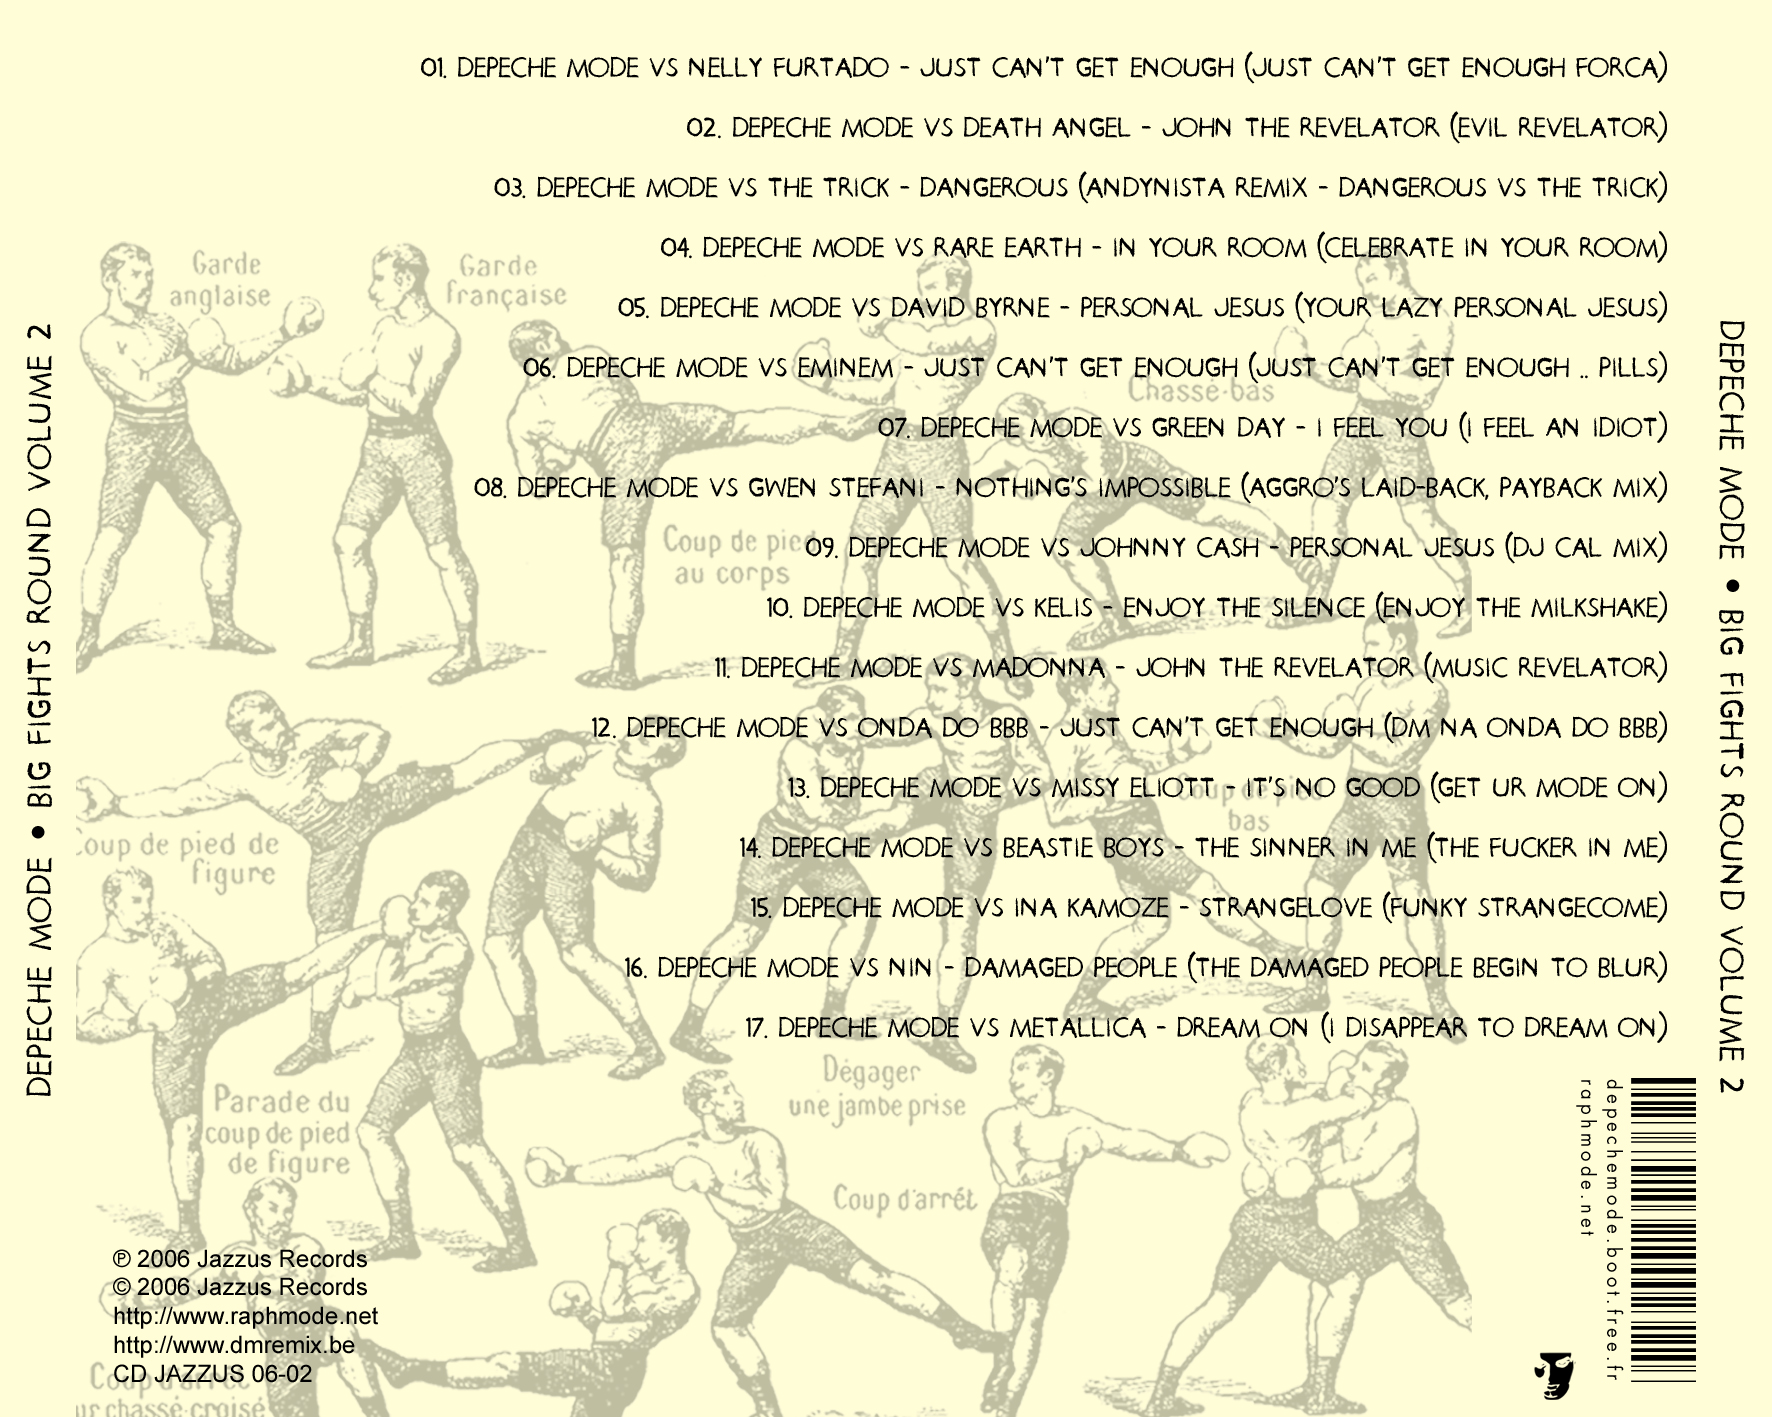 01. DEPECHE MODE VS NELLY FURTADO - JUST CAN'T GET ENOUGH (JUST CAN'T GET ENOUGH FORCA)
02. DEPECHE MODE VS DEATH ANGEL - JOHN THE REVELATOR (EVIL REVELATOR)
03. DEPECHE MODE VS THE TRICK - DANGEROUS (ANDYNISTA REMIX - DANGEROUS VS THE TRICK)
04. DEPECHE MODE VS RARE EARTH - IN YOUR ROOM (CELEBRATE IN YOUR ROOM)
05. DEPECHE MODE VS DAVID BYRNE - PERSONAL JESUS (YOUR LAZY PERSONAL JESUS)
06. DEPECHE MODE VS EMINEM - JUST CAN'T GET ENOUGH (JUST CAN'T GET ENOUGH .. PILLS)
07. DEPECHE MODE VS GREEN DAY - I FEEL YOU (I FEEL AN IDIOT)
08. DEPECHE MODE VS GWEN STEFANI - NOTHING'S IMPOSSIBLE (AGGRO'S LAID-BACK, PAYBACK MIX)
09. DEPECHE MODE VS JOHNNY CASH - PERSONAL JESUS (DJ CAL MIX)
10. DEPECHE MODE VS KELIS - ENJOY THE SILENCE (ENJOY THE MILKSHAKE)
11. DEPECHE MODE VS MADONNA - JOHN THE REVELATOR (MUSIC REVELATOR)
12. DEPECHE MODE VS ONDA DO BBB - JUST CAN'T GET ENOUGH (DM NA ONDA DO BBB)
13. DEPECHE MODE VS MISSY ELIOTT - IT'S NO GOOD (GET UR MODE ON)
14. DEPECHE MODE VS BEASTIE BOYS - THE SINNER IN ME (THE FUCKER IN ME)
15. DEPECHE MODE VS INA KAMOZE - STRANGELOVE (FUNKY STRANGECOME)
16. DEPECHE MODE VS NIN - DAMAGED PEOPLE (THE DAMAGED PEOPLE BEGIN TO BLUR)
17. DEPECHE MODE VS METALLICA - DREAM ON (I DISAPPEAR TO DREAM ON)
DEPECHE MODE • BIG FIGHTS ROUND VOLUME 2
DEPECHE MODE • BIG FIGHTS ROUND VOLUME 2
Garde
anglaise
Garde
française
Chassé-bas
Coup de pied
au corps
Coup de pied
bas
Coup de pied de
figure
Parade du
coup de pied
de figure
Dégager
une jambe prise
Coup d'arrêt
Coup d'arrêt
ur chassé-croisé
℗ 2006 Jazzus Records
© 2006 Jazzus Records
http://www.raphmode.net
http://www.dmremix.be
CD JAZZUS 06-02
depechemode.boot.free.fr
raphmode.net